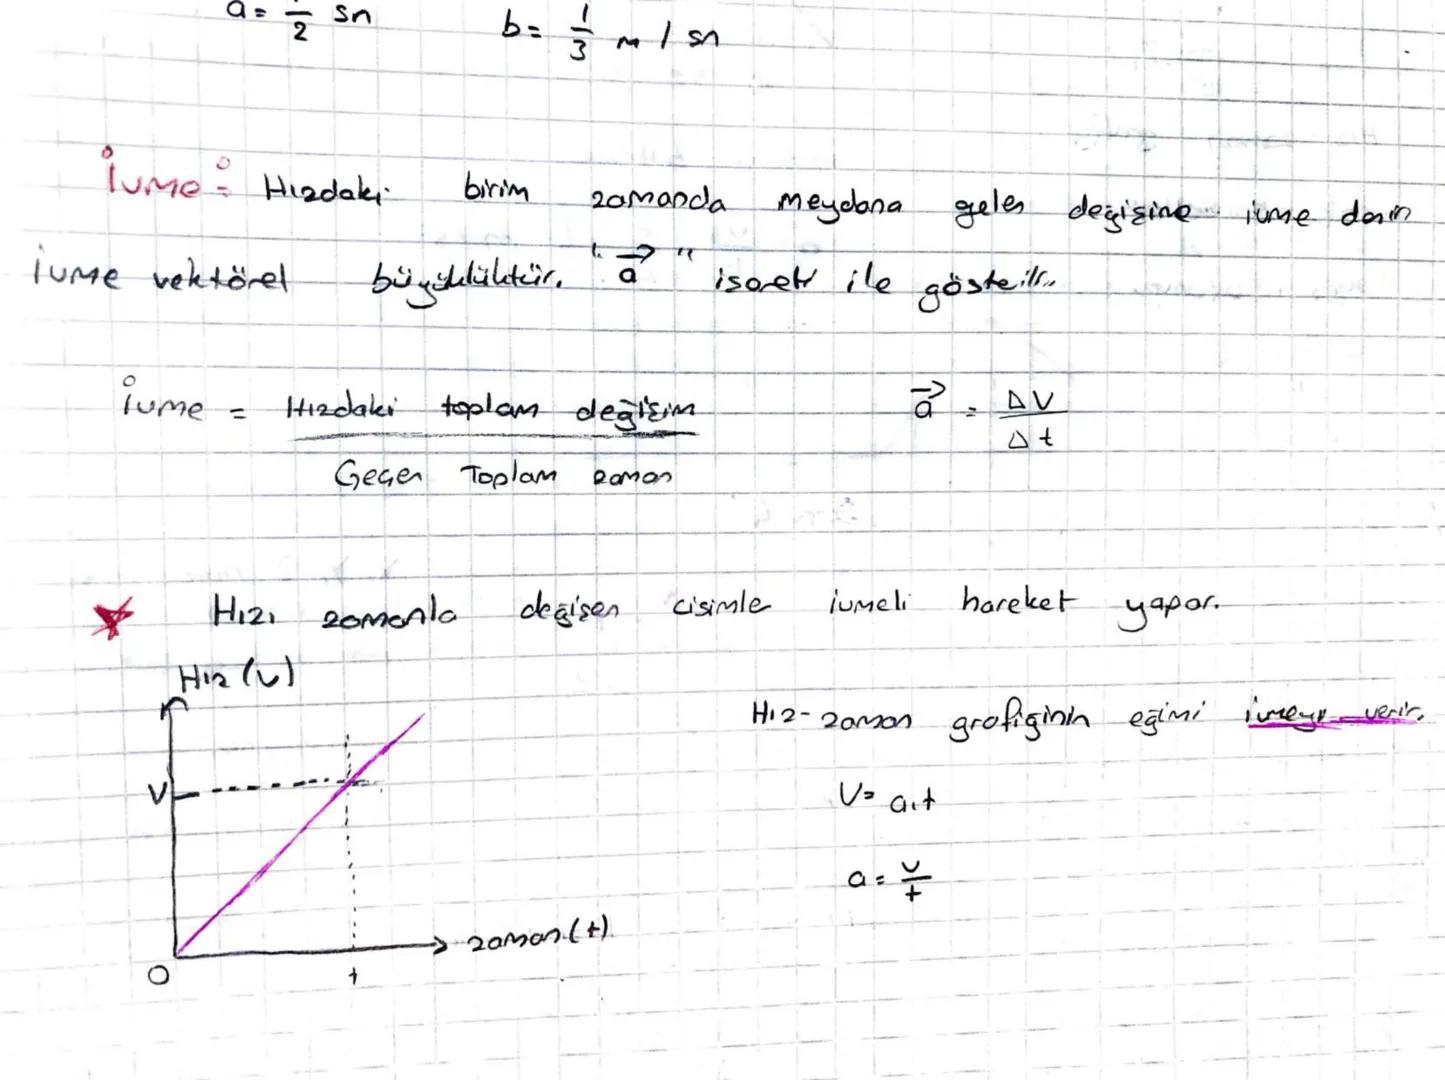 a = 1/2 sn b = 1/3 m / sn
İvme: Hızdaki birim zamanda meydana gelen değişime ivme denir
İvme vektörel büyüklüktür. "a→" işareti ile gösterilir.
İvme = Hızdaki toplam değişim a→ = ΔV
Geçen Toplam zaman Δt
Hızı zamanla değişen cisimle ivmeli hareket yapar.
Hız (v)
Hız-zaman grafiğinin eğimi ivmeyi verir.
V
V = a.t
a = v/t
zaman (t)
O t